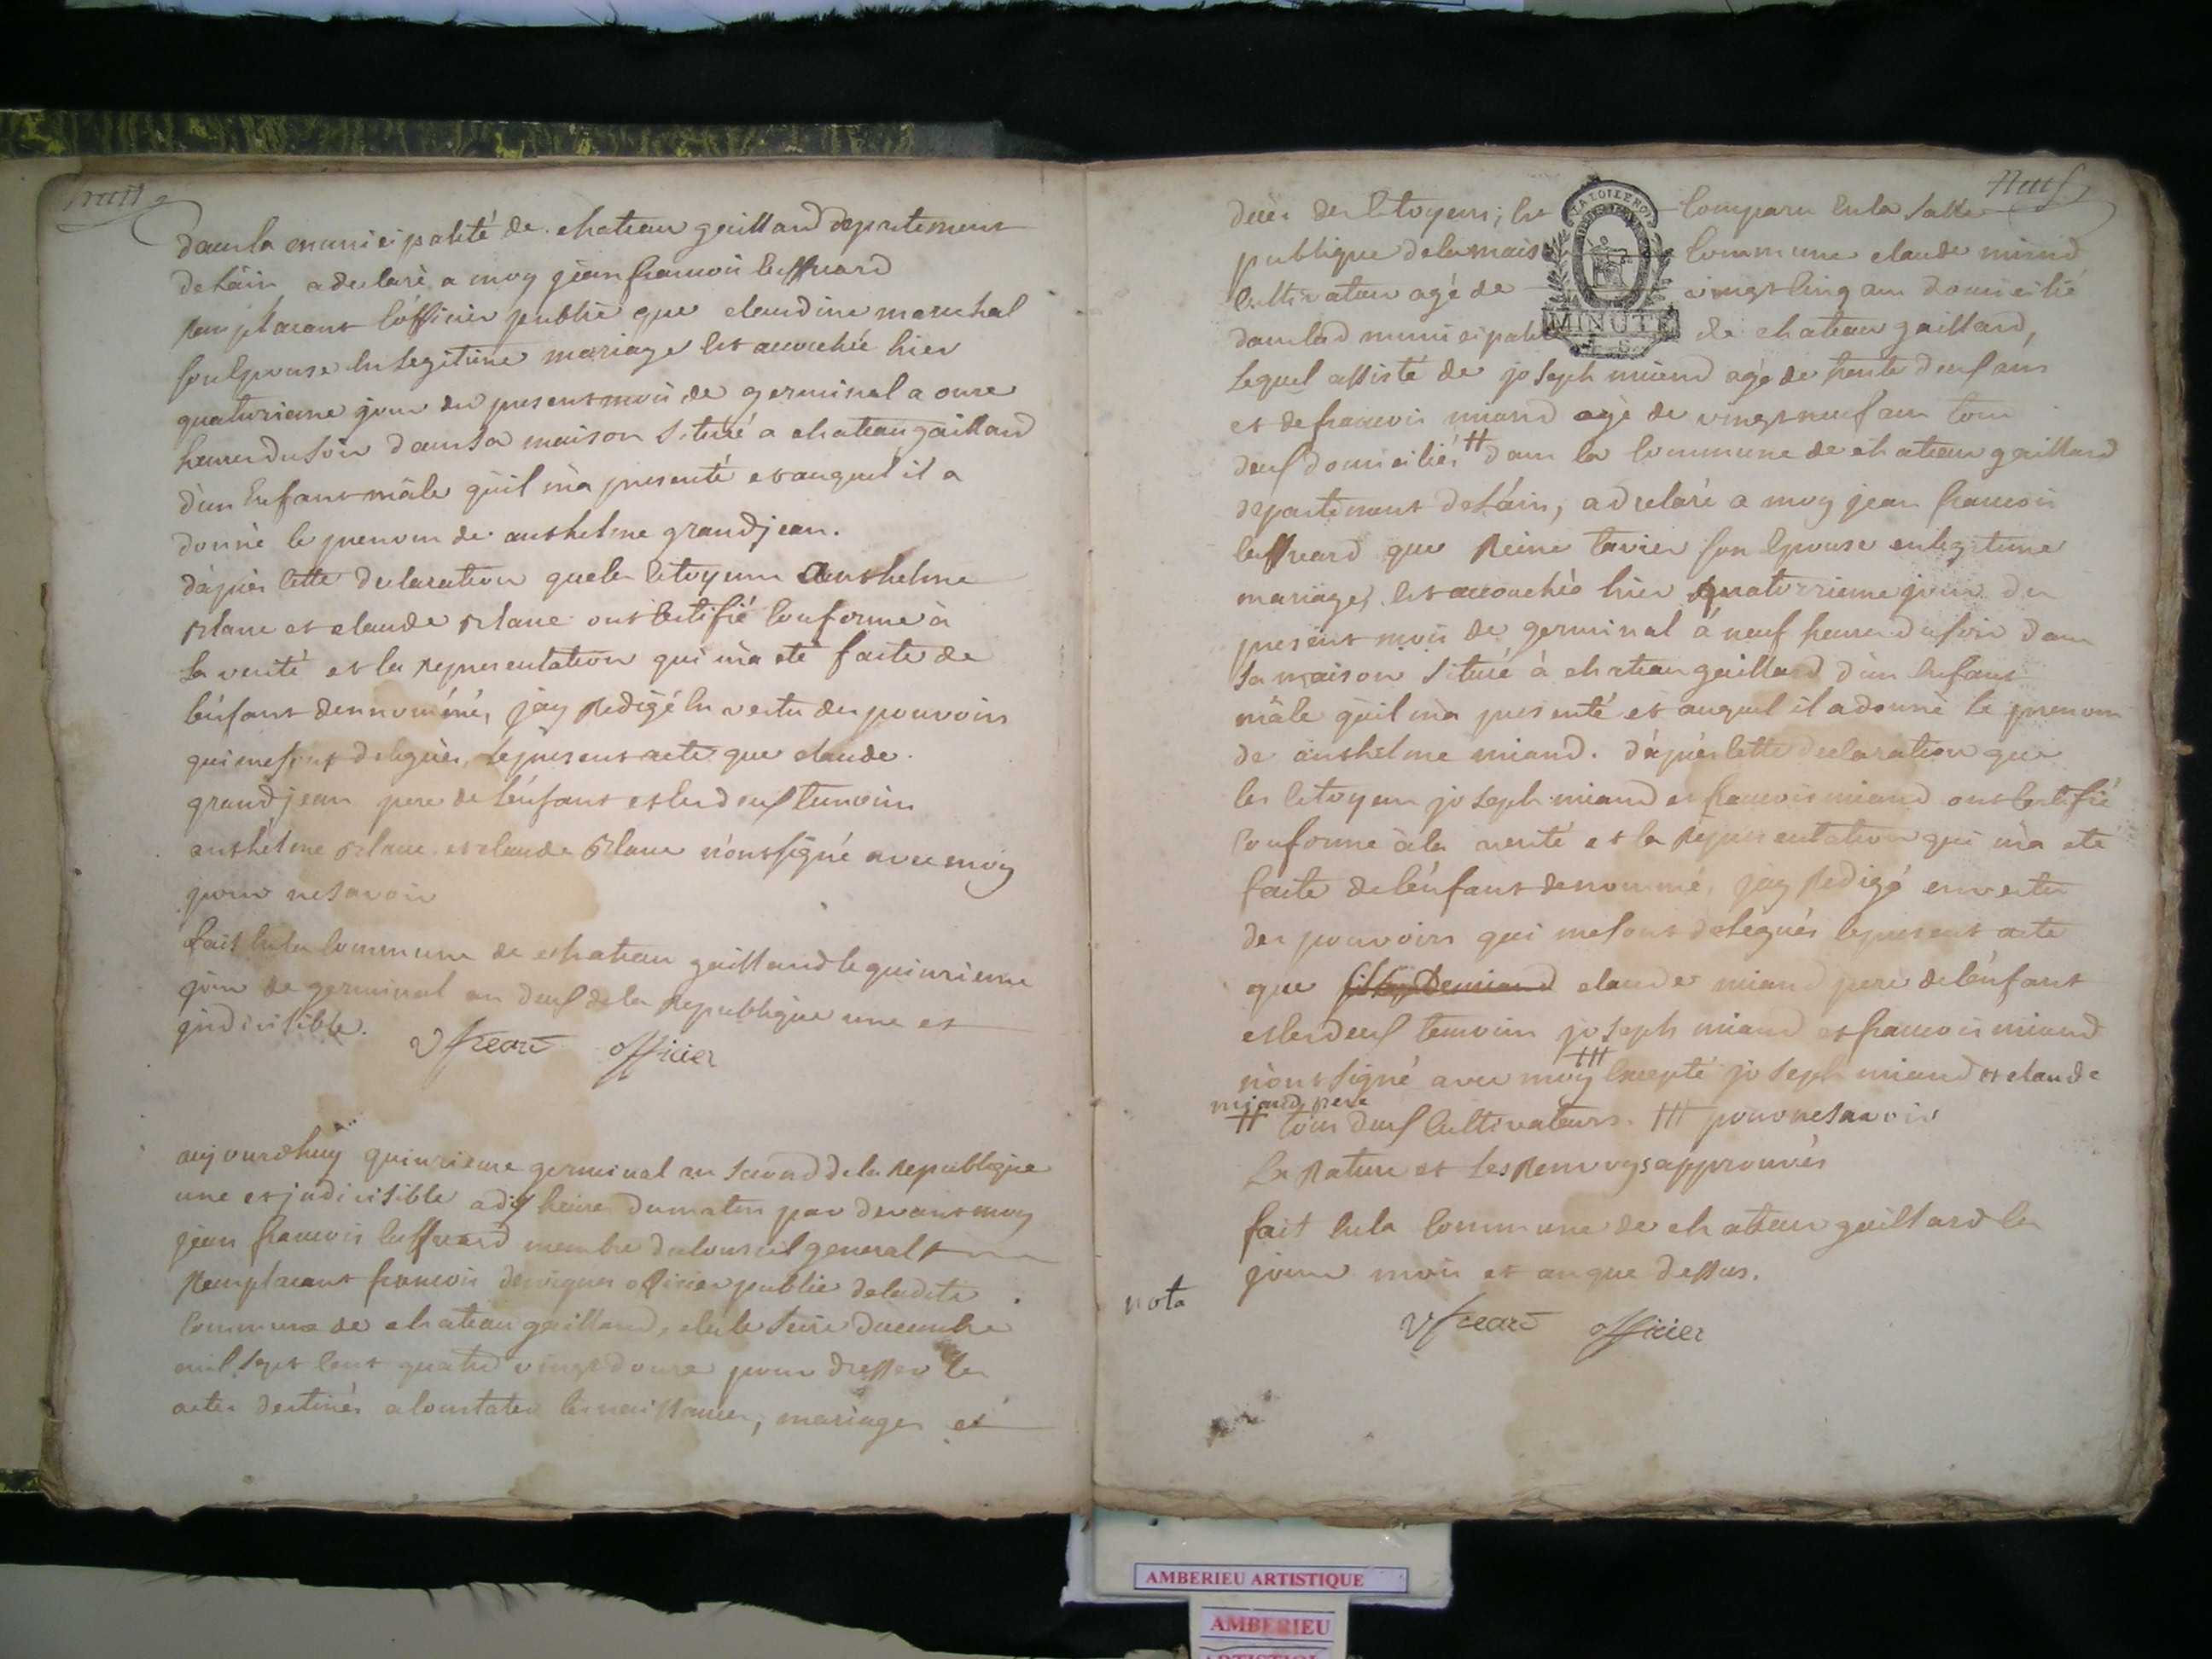 huit
dans la municipalité de chateau gaillard departement
de Láin a declaré a moy jean francois
remplacant lófficier public que claudine marechal
son Epouse En Legitime mariage Est accouchée hier
quatorzieme jour du present mois de germinal a onze
heures du Soir dans sa maison Située a chateau gaillard
d'un Enfant mâle quil m'a presenté et auquel il a
donné le prenom de anthelme grandjean.
d'après Cette declaration que les Citoyens anthelme
et claude ont Certifié Conforme à
La verité et la representation qui m'a eté faite de
lénfant dennommé, jay Redigé En vertu des pouvoirs
qui me sont delegués, Le present acte que claude
grandjean pere de Lénfant et les deux temoins
anthelme et claude n'ont signé avec moy
pour ne Savoir
fait En la Commune de chateau gaillard le quinzieme
jour de germinal an deux de la Republique une et
jndivisible.
officier
aujourdhuy quinzieme germinal an Second de la Republique
une et jndivisible a dix heures du matin par devant moy
jean francois membre du Conseil general
Remplacant francois officier public de ladite
Commune de chateau gaillard, elu le Seize decembre
mil Sept Cent quatre vingt douze pour dresser les
actes destinés a Constater les naissances, mariages et
neuf
décès des Citoyens; Est Comparu En la Salle
publique de la maison Commune claude miand
Cultivateur agé de vingt Cinq ans domicilié
dans lad municipalité de chateau gaillard,
LA LOI LE ROI
MINUTE
Lequel assisté de joseph miand agé de trente deux ans
et de francois miand agé de vingt neuf ans tous
deux domiciliés # dans la Commune de chateau gaillard
departement de Láin, a declaré a moy jean francois
que Reine tavier son Epouse en legitime
mariage, Est accouchée hier quatorzieme jour du
present mois de germinal á neuf heures du soir dans
Sa maison Située à chateau gaillard d'un Enfant
mâle quil m'a presenté et auquel il a donné le prenom
de anthelme miand. d'après Cette declaration que
les Citoyens joseph miand et francois miand ont Certifié
Conforme à la verité et la Representation qui m'a eté
faite de lénfant denommé, jay Redigé en vertu
des pouvoirs qui me sont delégués le present acte
que claude miand pere de lénfant
et les deux temoins joseph miand et francois miand
n'ont signé avec moy ⧻ Excepté joseph miand et claude
miand pere
# tous deux Cultivateurs. ⧻ pour ne Savoir
La Rature et Les Renvoys approuvés
fait En la Commune de chateau gaillard les
jour mois et an que dessus.
nota
officier
AMBERIEU ARTISTIQUE
AMBERIEU
ARTISTIQUE